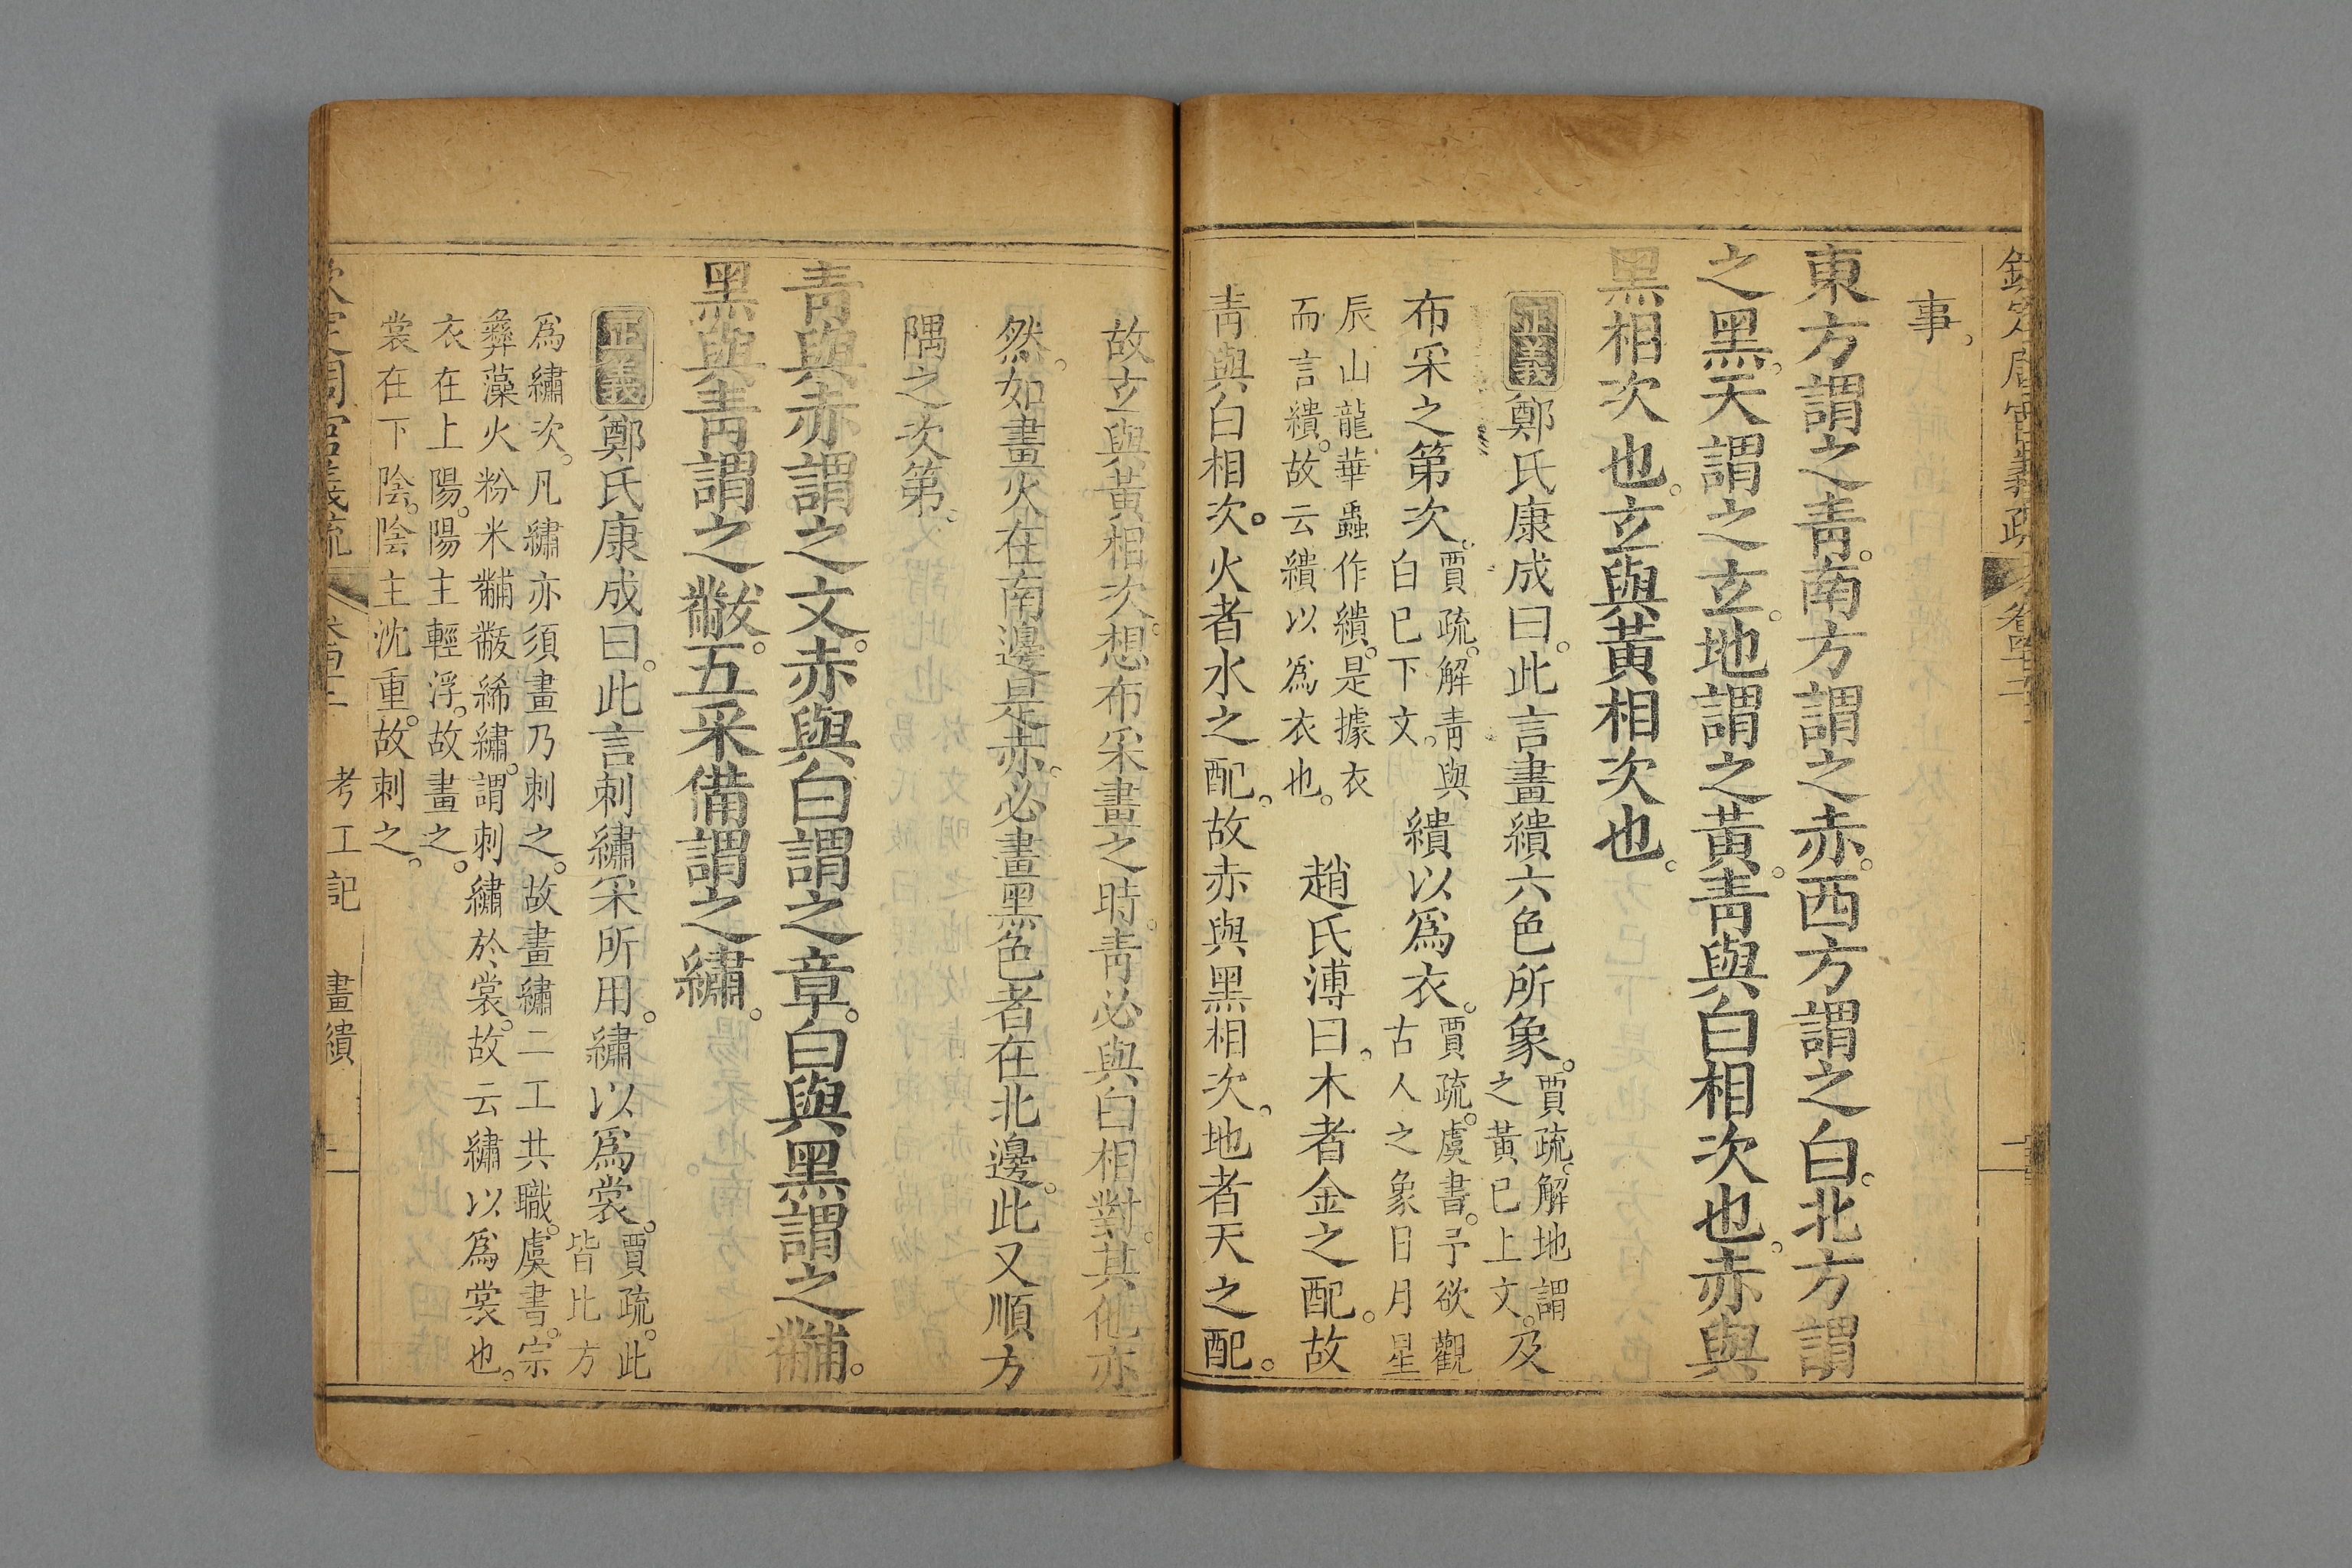 事。
東方謂之靑。南方謂之赤。西方謂之白。北方謂
之黑。天謂之玄。地謂之黃。靑與白相次也。赤與
黑相次也。玄與黃相次也。
正義鄭氏康成曰。此言畫繢六色所象。賈疏。解地謂
之黃已上文。及
布采之第次。賈疏。解靑與
白已下文。繢以爲衣。賈疏。虞書。予欲觀
古人之象日月星
辰山龍華蟲作繢。是據衣
而言繢。故云繢以爲衣也。趙氏溥曰。木者金之配。故
靑與白相次。火者水之配。故赤與黑相次。地者天之配。
故玄與黃相次。想布采畫之時。靑必與白相對。其他亦
然。如畫火在南邊是赤。必畫黑色者在北邊。此又順方
隅之次第。
靑與赤謂之文。赤與白謂之章。白與黑謂之黼。
黑與靑謂之黻。五采備謂之繡。
正義鄭氏康成曰。此言刺繡采所用。繡以爲裳。賈疏。此
皆比方
爲繡次。凡繡亦須畫乃刺之。故畫繡二工共職。虞書。宗
彝藻火粉米黼黻絺繡。謂刺繡於裳。故云繡以爲裳也。
衣在上陽。陽主輕浮。故畫之。
裳在下陰。陰主沈重。故刺之。
考工記 畫繢